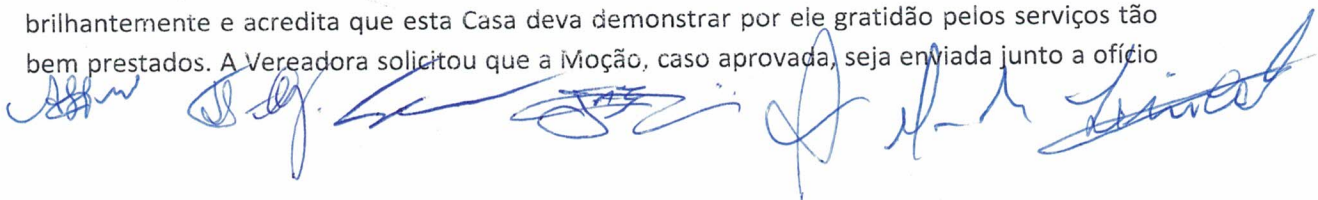 brilhantemente e acredita que esta Casa deva demonstrar por ele gratidão pelos serviços tão
bem prestados. A Vereadora solicitou que a Moção, caso aprovada, seja enviada junto a ofício